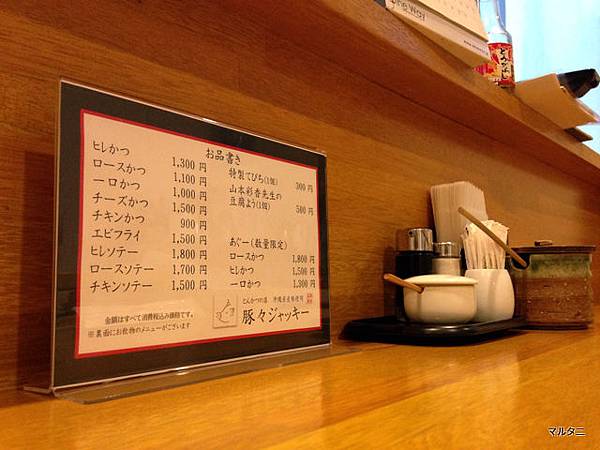 お品書き
ヒレかつ 1,300 円
ロースかつ 1,100 円
一口かつ 1,000 円
チーズかつ 1,500 円
チキンかつ 900 円
エビフライ 1,500 円
ヒレソテー 1,800 円
ロースソテー 1,700 円
チキンソテー 1,500 円
特製てびち(1個) 300 円
山本彩香先生の
豆腐よう(1個) 500 円
あぐー(数量限定)
ロースかつ 1,800 円
ヒレかつ 1,500 円
一口かつ 1,300 円
金額はすべて消費税込み価格です。
※裏面にお飲物のメニューがございます
とんかつの店 沖縄県産豚使用
豚々ジャッキー
マルタニ